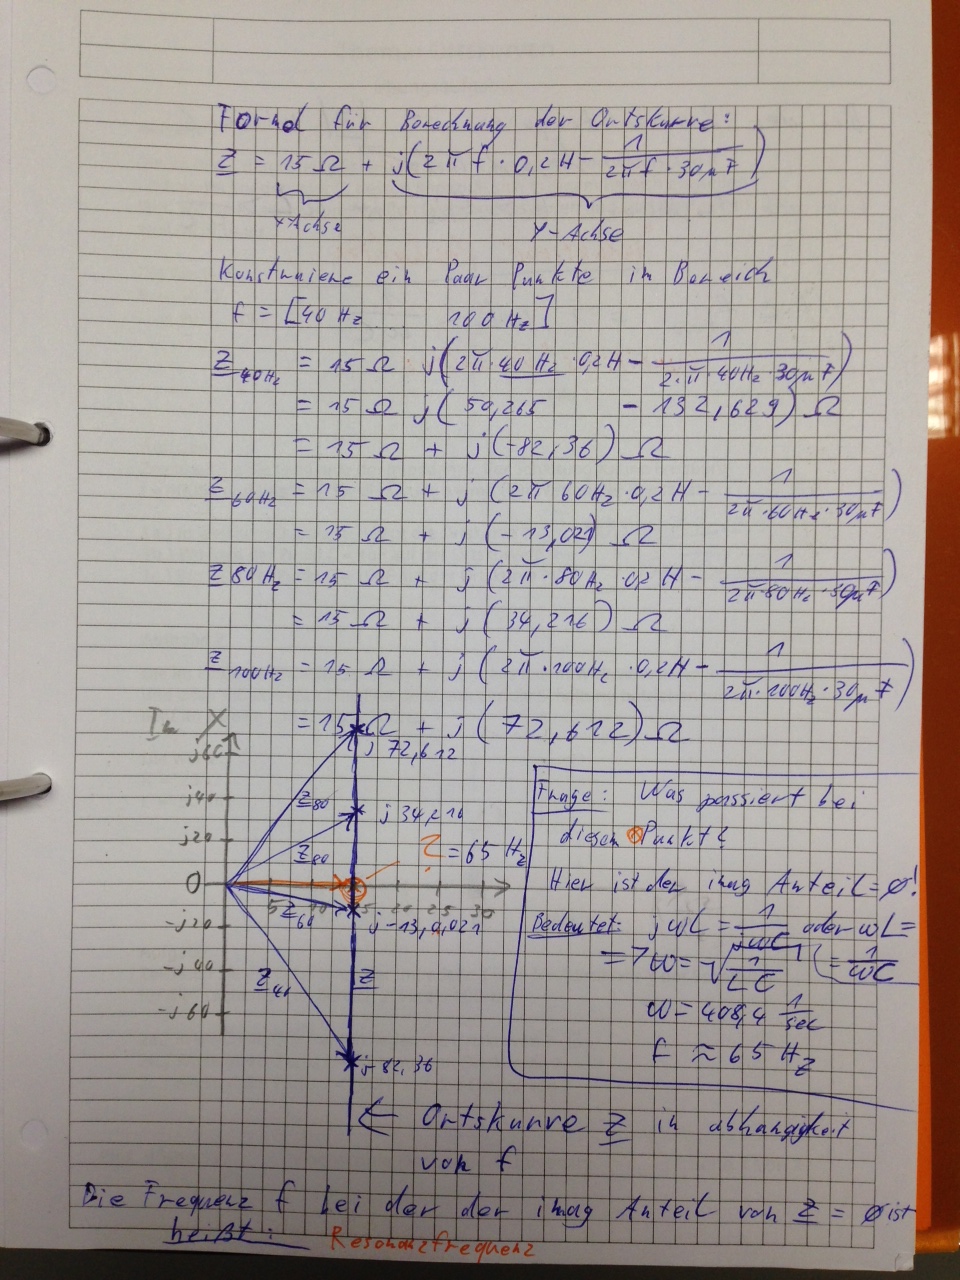 Formel für Berechnung der Ortskurve:
Z = 15 Ω + j(2πf · 0,2H - 1/(2πf · 30µF))
x-Achse
Y-Achse
Konstruiere ein Paar Punkte im Bereich
f = [40 Hz 100 Hz]
Z40Hz = 15 Ω j(2π · 40 Hz · 0,2H - 1/(2·π·40Hz·30µF))
= 15 Ω j(50,265 - 132,629) Ω
= 15 Ω + j(-82,36) Ω
Z60Hz = 15 Ω + j(2π 60Hz · 0,2H - 1/(2π·60Hz·30µF))
= 15 Ω + j(-13,021) Ω
Z80Hz = 15 Ω + j(2π·80Hz · 0,2H - 1/(2π·80Hz·30µF))
= 15 Ω + j(34,216) Ω
Z100Hz = 15 Ω + j(2π·100Hz · 0,2H - 1/(2π·100Hz·30µF))
= 15 Ω + j(72,612) Ω
Im X
j60
j 72,612
j40
Z80
j 34,216
j20
Z80
? = 65 Hz
0
5 20 25 30
Z60
-j20
j-13,0,021
-j40
Z40
Z
-j60
j-82,36
Frage: Was passiert bei
diesem ⊗ Punkt?
Hier ist der imag Anteil = ø!
Bedeutet: jωL = 1/(jωC) oder ωL =
=> ω = √(1/(LC)) ( = 1/(ωC)
ω = 408,4 1/sec
f ≈ 65 Hz
← Ortskurve Z in abhängigkeit
von f
Die Frequenz f bei der der imag Anteil von Z = ø ist
heißt: Resonanzfrequenz